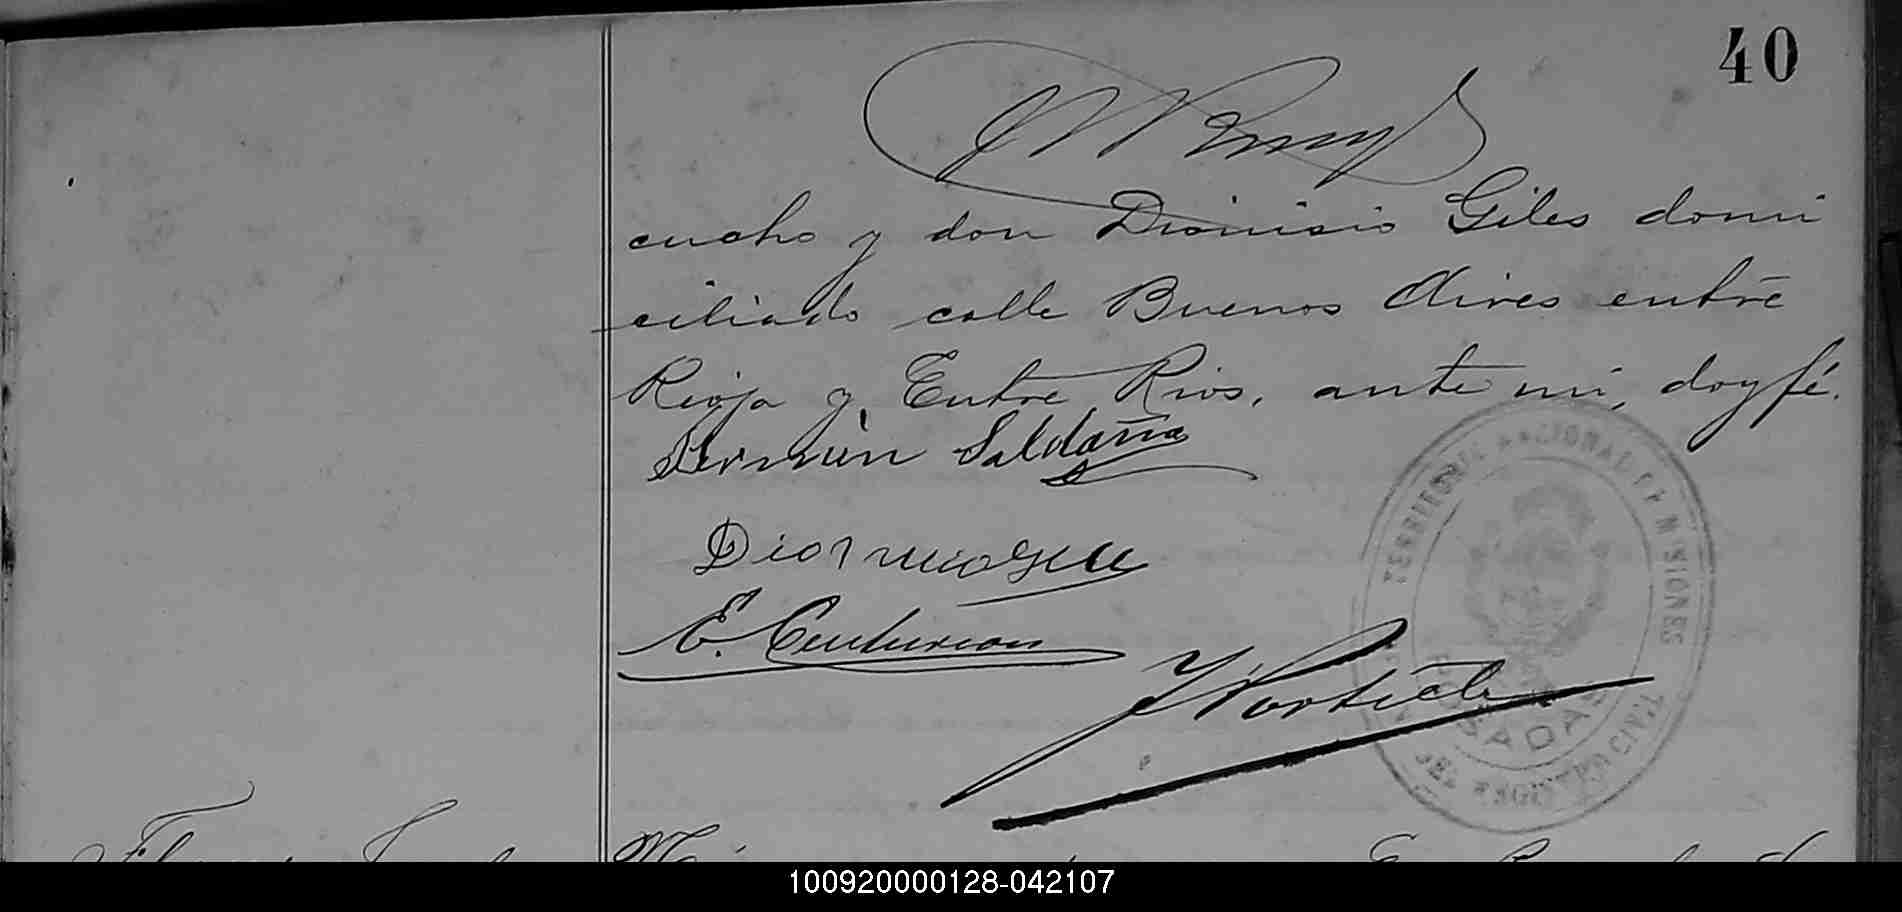 40
cucho y don Dionisio Giles domi
ciliado calle Buenos Aires entre
Rioja y Entre Rios, ante mi, doy fé.
Fermín Saldaña
Dionicio Gile
E. Centurion
TERRITORIO NACIONAL DE MISIONES
POSADAS
DEL REGISTRO CIVIL
100920000128-042107